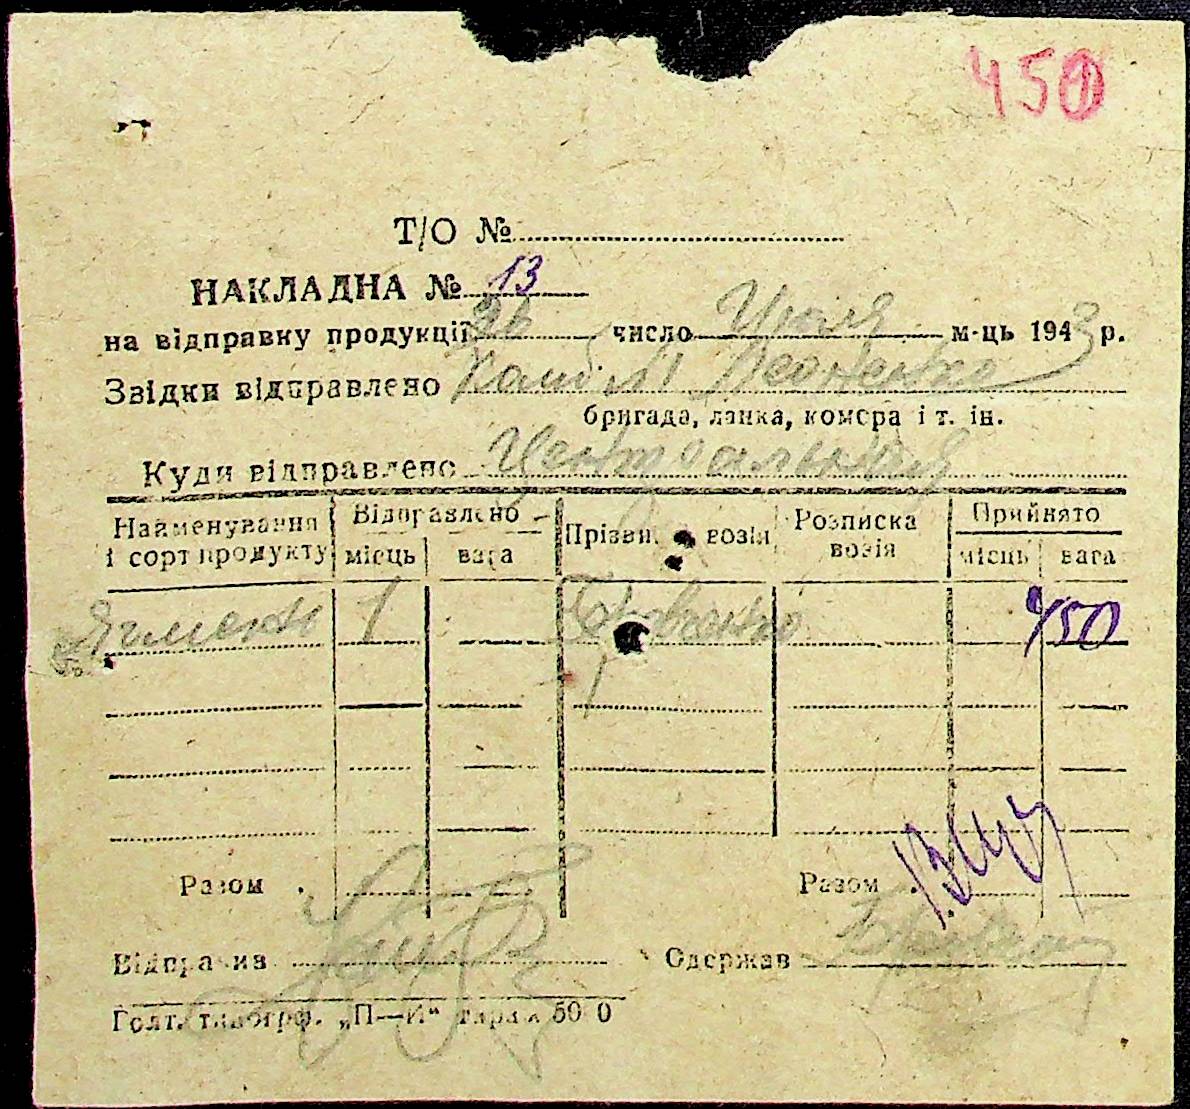 450
Т/О №
НАКЛАДНА № 13
на відправку продукції 26 число Июля м-ць 1943 р.
Звідки відправлено Комб М Леоненко
бригада, ланка, комора і т. ін.
Куди відправлено Центральная
Найменування і сорт продукту Відправлено місць вага Прізви. возія Розписка возія Прийнято місць вага
Ячмень 1 450
Разом . Разом .
Відправив Одержав
Голт. типогрф. „П—И“ тираж 50 0